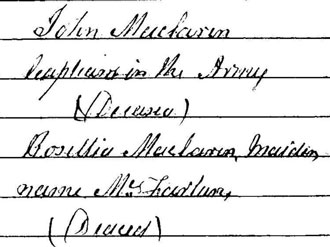 John Maclaren
Captain in the Army
(Deceased)
Rosellia Maclaren, Maiden
name McFarlan,
(Deaced)